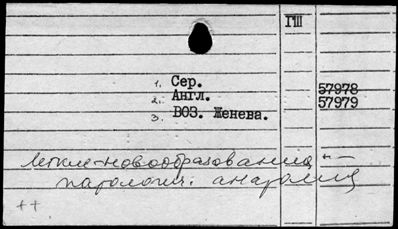 ГШ
1. Сер.
2. Англ. 57978
3. ВОЗ. Женева. 57979
легкие-новообразования --
патология. анатомия
++